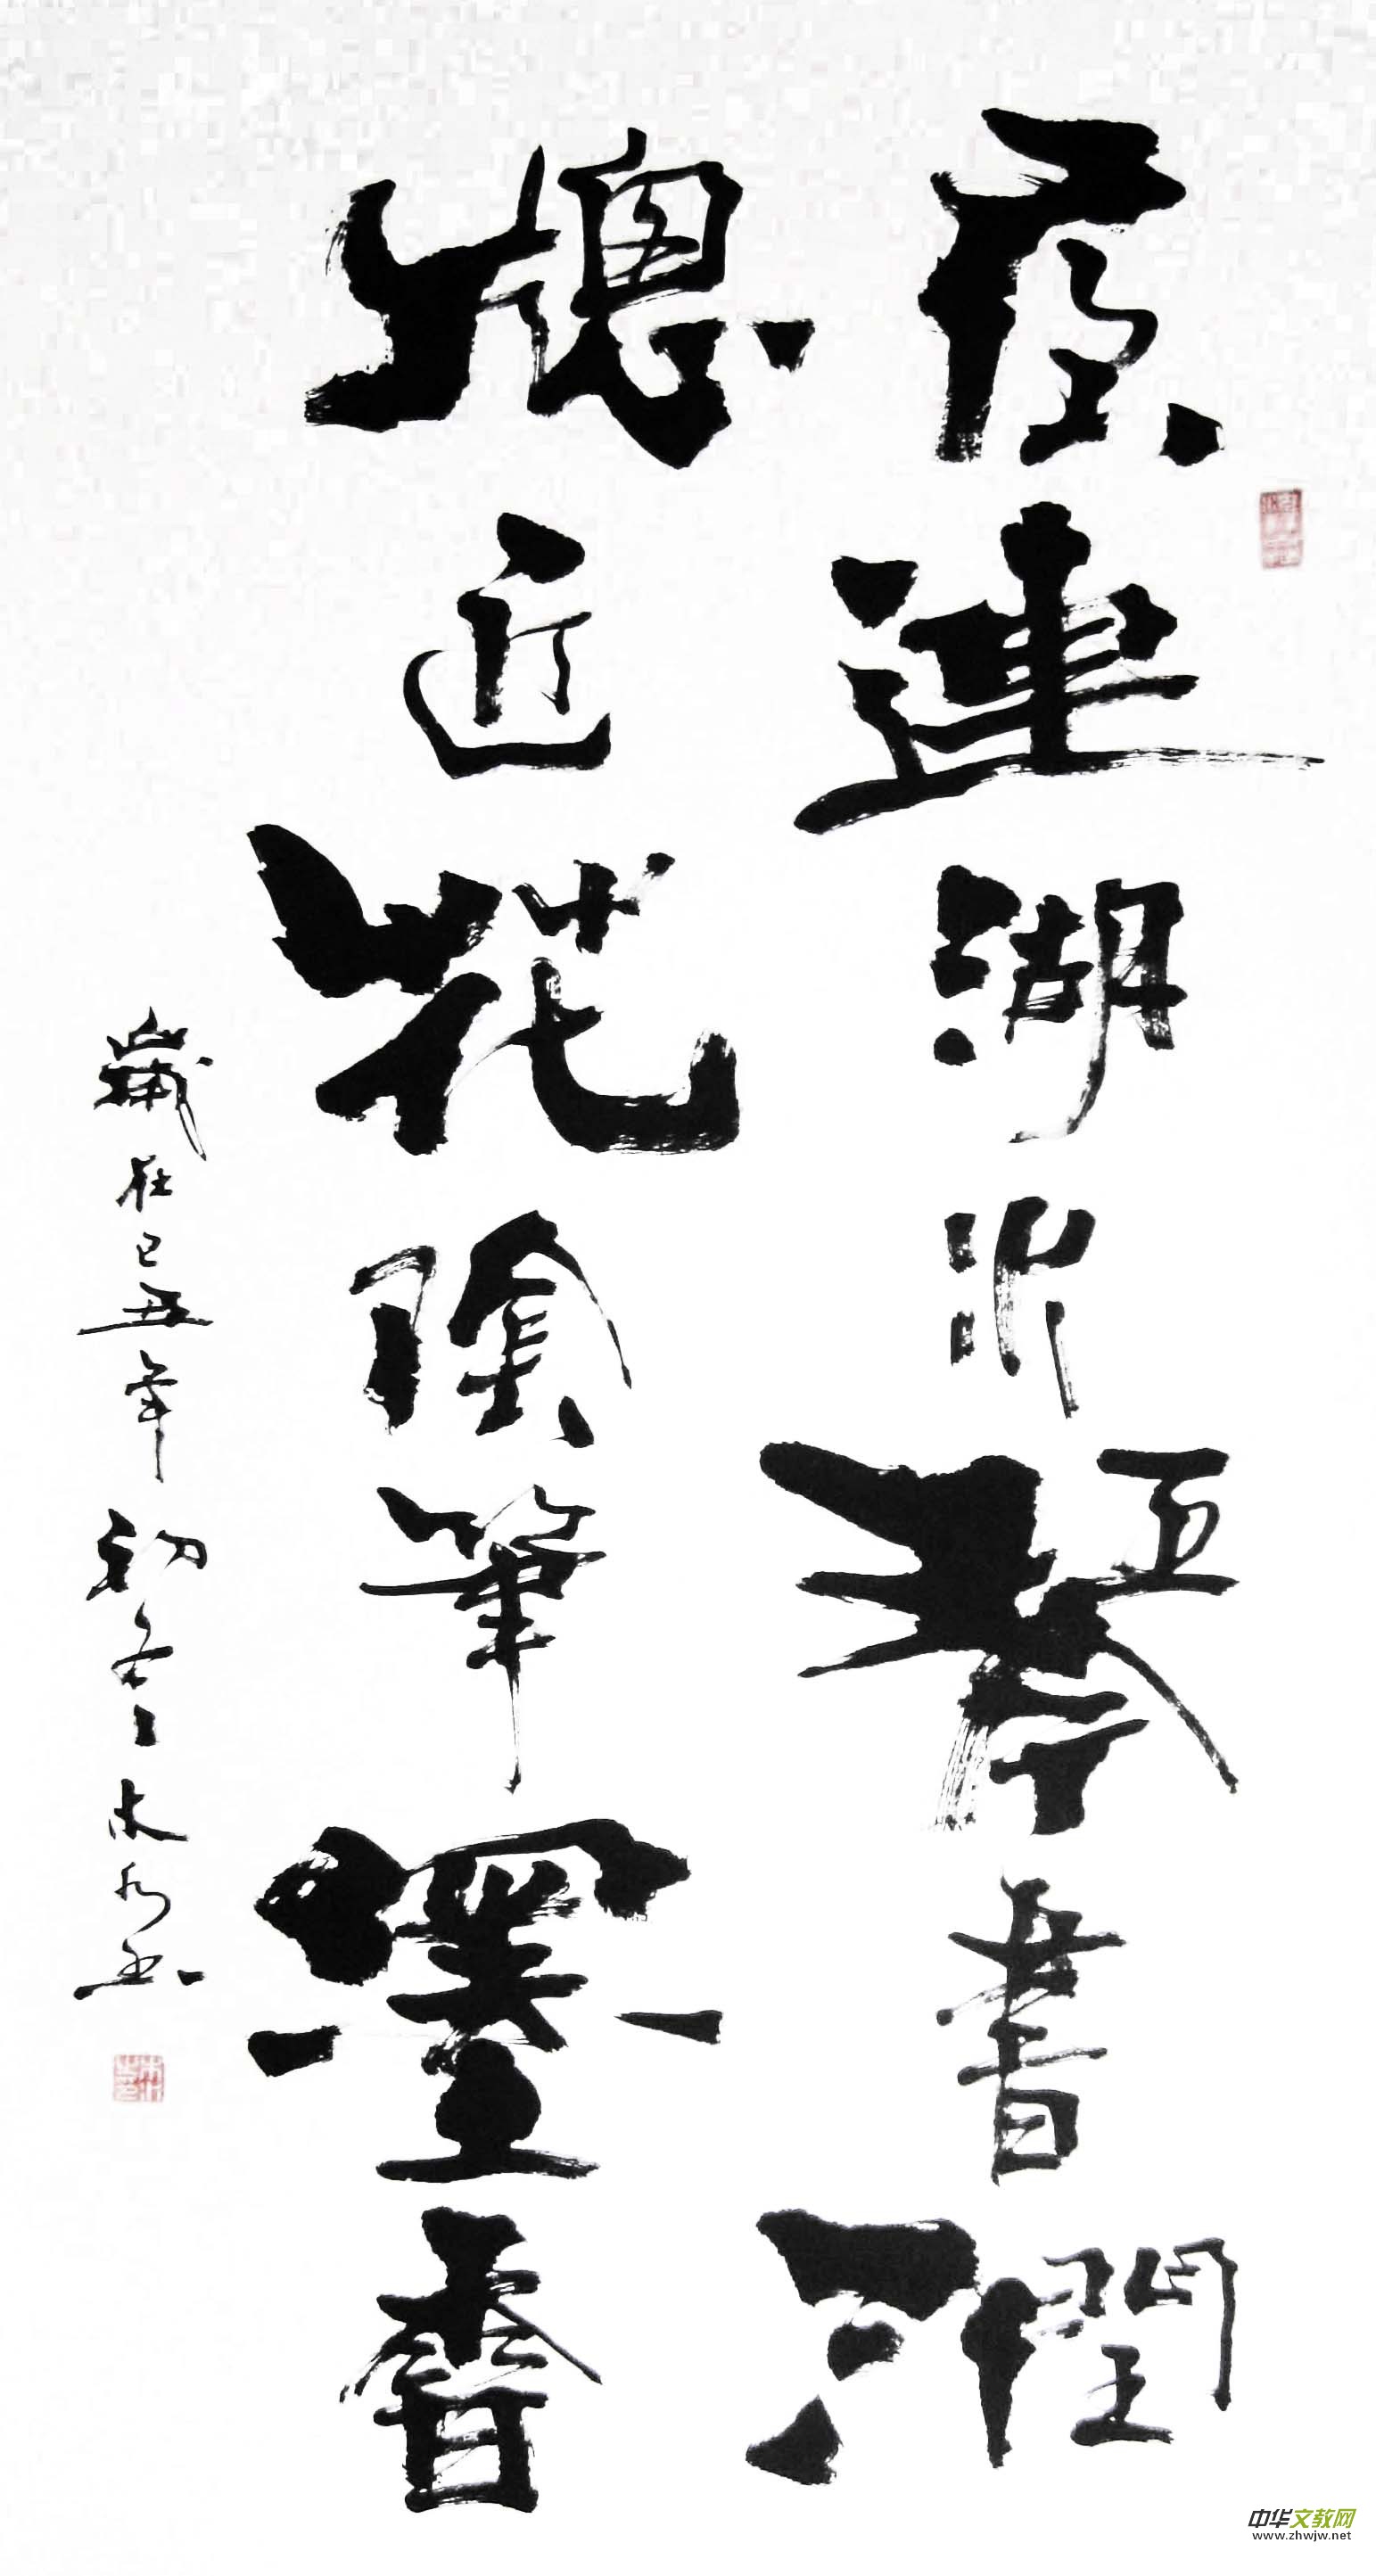 居連湖水琴書潤
牕近花陰筆墨香
歲在己丑年初冬月木水書
中华文教网
www.zhwjw.net